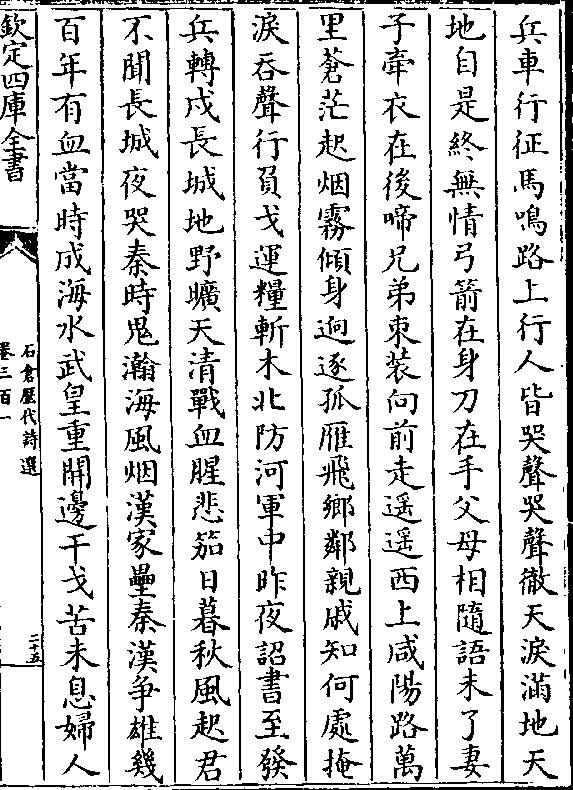 兵車行征馬鳴路上行人皆哭聲哭聲徹天淚滿地天
地自是終無情弓箭在身刀在手父母相隨語未了妻
子牽衣在後啼兄弟束裝向前走遥遥西上咸陽路萬
里蒼茫起烟霧傾身逈逐孤雁飛鄉鄰親戚知何處掩
淚吞聲行負戈運糧斬木北防河軍中昨夜詔書至發
兵轉戍長城地野曠天清戰血腥悲笳日暮秋風起君
不聞長城夜哭秦時鬼瀚海風烟漢家壘秦漢爭雄幾
百年有血當時成海水武皇重開邊干戈苦未息婦人
欽定四庫全書
石倉歷代詩選
卷三百一
二十五